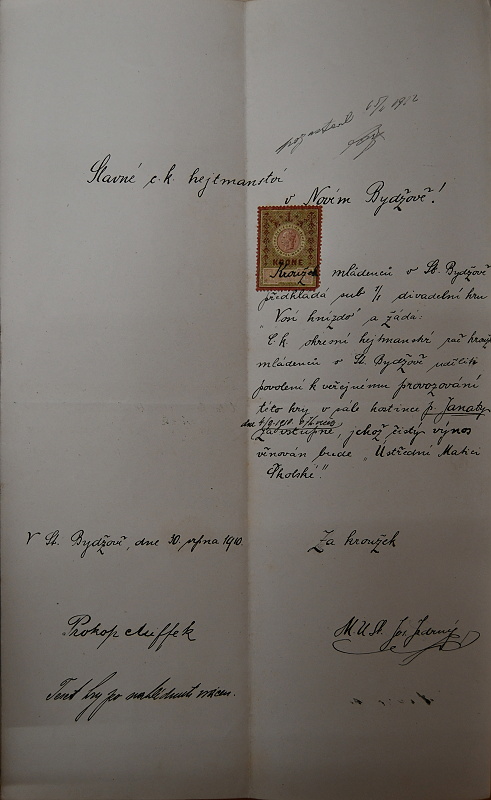 Slavné c.k. hejtmanství
v Novém Bydžově!
1
KRONE
Kroužek mládenců v St. Bydžově
předkládá sub 1/1 divadelní hru
"Vosí hnízdo" a žádá:
C.k. okresní hejtmanství rač krouž.
mládenců v St. Bydžově uděliti
povolení k veřejnému provozování
této hry v sále hostince p. Janaty
za vstupné, jehož čistý výnos
věnován bude "Ústřední Matici
Školské".
V St. Bydžově, dne 30. srpna 1910.
Za kroužek
Prokop
Jos.
Text hry po nahlédnutí vrácen.